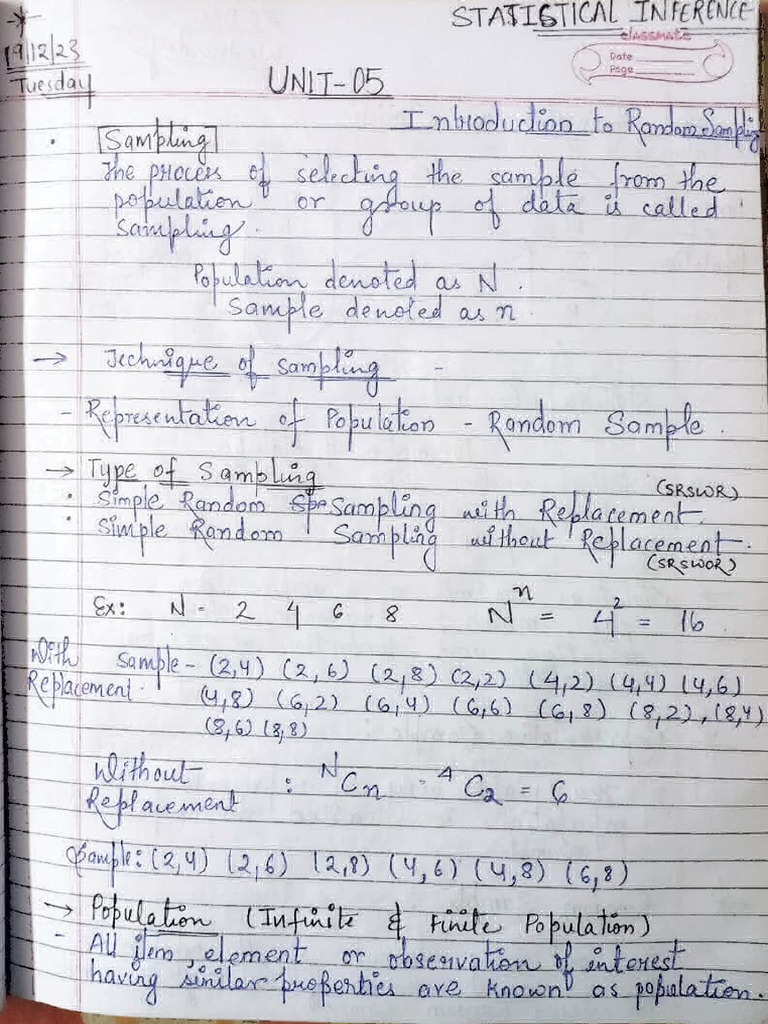 STATISTICAL INFERENCE
classmate
Date
Page
19/12/23
Tuesday
UNIT-05
Introduction to Random Sampling
• Sampling
The process of selecting the sample from the
population or group of data is called
Sampling.
Population denoted as N.
Sample denoted as n.
→ Technique of sampling -
- Representation of Population - Random Sample.
→ Type of Sampling
(SRSWR)
• Simple Random Sampling with Replacement.
• Simple Random Sampling without Replacement.
(SRSWOR)
Ex: N - 2 4 6 8 Nⁿ = 4² = 16
With Replacement. Sample - (2,4) (2,6) (2,8) (2,2) (4,2) (4,4) (4,6)
(4,8) (6,2) (6,4) (6,6) (6,8) (8,2), (8,4)
(8,6) (8,8)
Without
Replacement : ᴺCn = ⁴C₂ = 6
Sample: (2,4) (2,6) (2,8) (4,6) (4,8) (6,8)
→ Population (Infinite & Finite Population)
- All item, element or observation of interest
having similar properties are known as population.